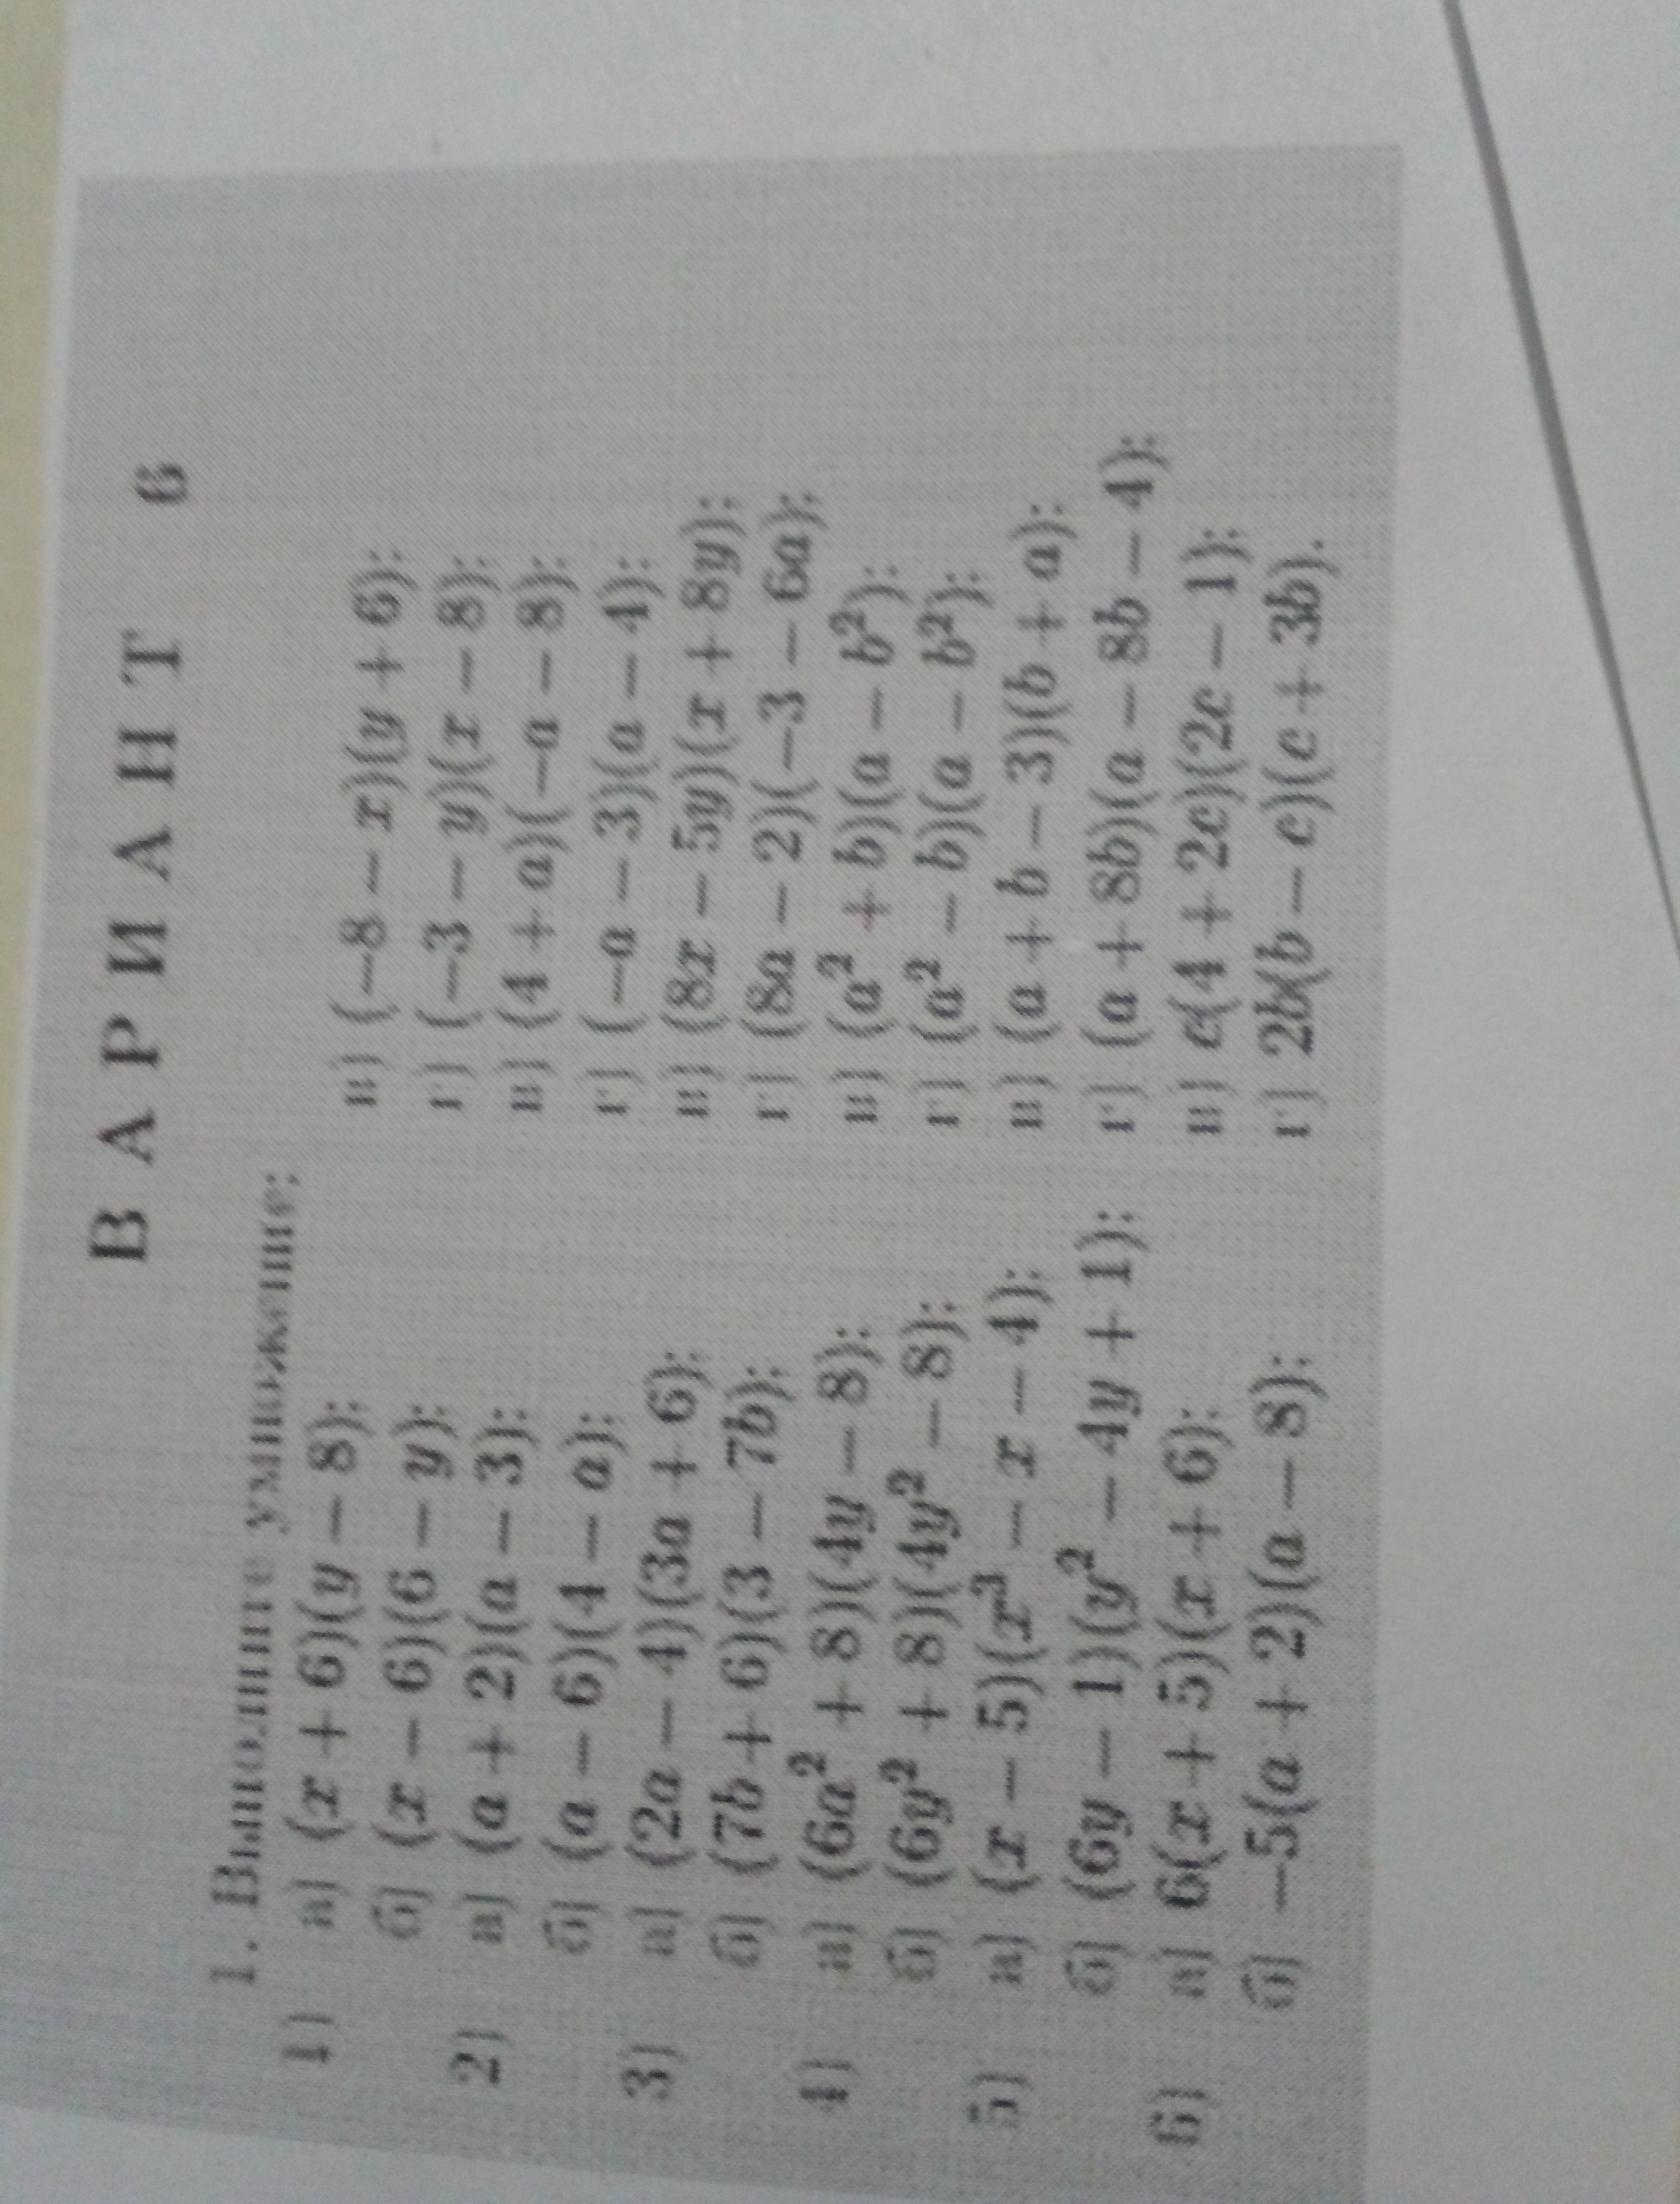 ВАРИАНТ 6
1. Выполните умножение:
1) а) (x + 6)(y − 8); в) (−8 − x)(y + 6);
б) (x − 6)(6 − y); г) (−3 − y)(x − 8);
2) а) (a + 2)(a − 3); в) (4 + a)(−a − 8);
б) (a − 6)(4 − a); г) (−a − 3)(a − 4);
3) а) (2a − 4)(3a + 6); в) (8x − 5y)(x + 8y);
б) (7b + 6)(3 − 7b); г) (8a − 2)(−3 − 6a);
4) а) (6a² + 8)(4y − 8); в) (a² + b)(a − b²);
б) (6y² + 8)(4y² − 8); г) (a² − b)(a − b²);
5) а) (x − 5)(x² − x − 4); в) (a + b − 3)(b + a);
б) (6y − 1)(y² − 4y + 1); г) (a + 8b)(a − 8b − 4);
6) а) 6(x + 5)(x + 6); в) c(4 + 2c)(2c − 1);
б) −5(a + 2)(a − 8); г) 2b(b − c)(c + 3b).